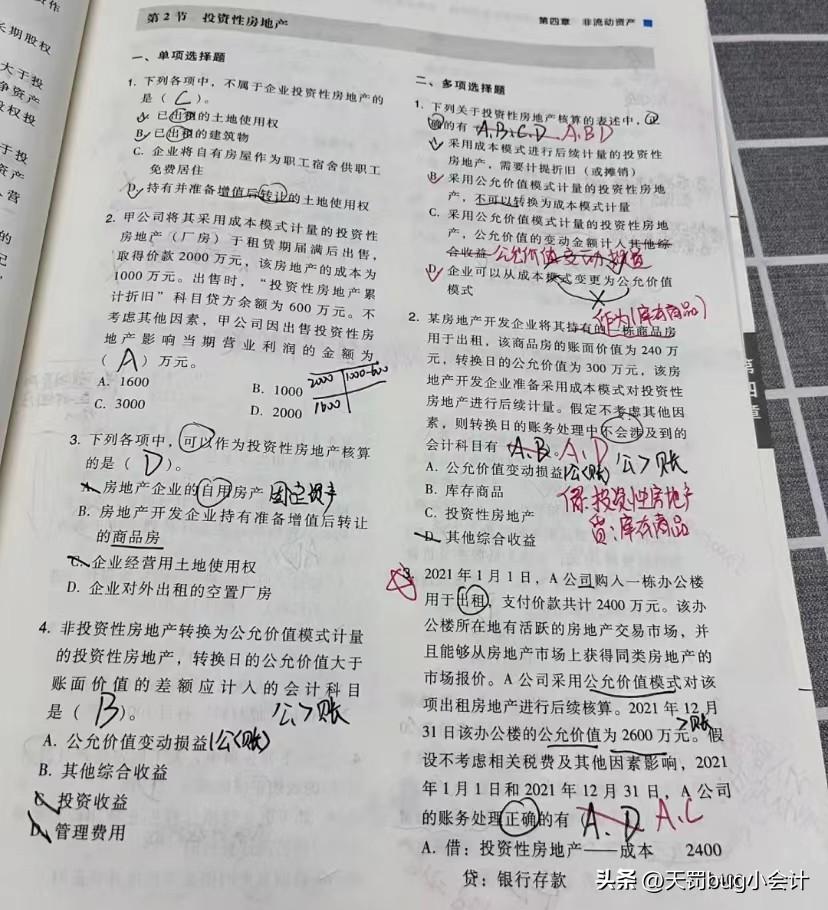 第2节 投资性房地产
第四章 非流动资产
一、单项选择题
1. 下列各项中，不属于企业投资性房地产的
是（ C ）。
A. 已出租的土地使用权
B. 已出租的建筑物
C. 企业将自有房屋作为职工宿舍供职工
免费居住
D. 持有并准备增值后转让的土地使用权
2. 甲公司将其采用成本模式计量的投资性
房地产（厂房）于租赁期届满后出售，
取得价款2000万元，该房地产的成本为
1000万元。出售时，“投资性房地产累
计折旧”科目贷方余额为600万元。不
考虑其他因素，甲公司因出售投资性房
地产影响当期营业利润的金额为
（ A ）万元。
A. 1600
B. 1000
C. 3000
D. 2000
2000 1000-600
1600
3. 下列各项中，可以作为投资性房地产核算
的是（ D ）。
A. 房地产企业的自用房产 固定资产
B. 房地产开发企业持有准备增值后转让
的商品房
C. 企业经营用土地使用权
D. 企业对外出租的空置厂房
4. 非投资性房地产转换为公允价值模式计量
的投资性房地产，转换日的公允价值大于
账面价值的差额应计入的会计科目
是（ B ）。 公>账
A. 公允价值变动损益(公<账)
B. 其他综合收益
C. 投资收益
D. 管理费用
二、多项选择题
1. 下列关于投资性房地产核算的表述中，正
确的有 A.B.C.D A.B.D
A. 采用成本模式进行后续计量的投资性
房地产，需要计提折旧（或摊销）
B. 采用公允价值模式计量的投资性房地
产，不可以转换为成本模式计量
C. 采用公允价值模式计量的投资性房地
产，公允价值的变动金额计入其他综
合收益 公允价值变动损益
D. 企业可以从成本模式变更为公允价值
模式
作为(库存商品)
2. 某房地产开发企业将其持有的一栋商品房
用于出租，该商品房的账面价值为240万
元，转换日的公允价值为300万元，该房
地产开发企业准备采用成本模式对投资性
房地产进行后续计量。假定不考虑其他因
素，则转换日的账务处理中不会涉及到的
会计科目有 A.B. A.D
A. 公允价值变动损益(公<账) 公>账
B. 库存商品
C. 投资性房地产
D. 其他综合收益
借:投资性房地产
贷:库存商品
3. 2021年1月1日，A公司购入一栋办公楼
用于出租，支付价款共计2400万元。该办
公楼所在地有活跃的房地产交易市场，并
且能够从房地产市场上获得同类房地产的
市场报价。A公司采用公允价值模式对该
项出租房地产进行后续核算。2021年12月
>账
31日该办公楼的公允价值为2600万元。假
设不考虑相关税费及其他因素影响，2021
年1月1日和2021年12月31日，A公司
的账务处理正确的有 A.D A.C
A. 借：投资性房地产——成本 2400
贷：银行存款
头条 @天罚bug小会计